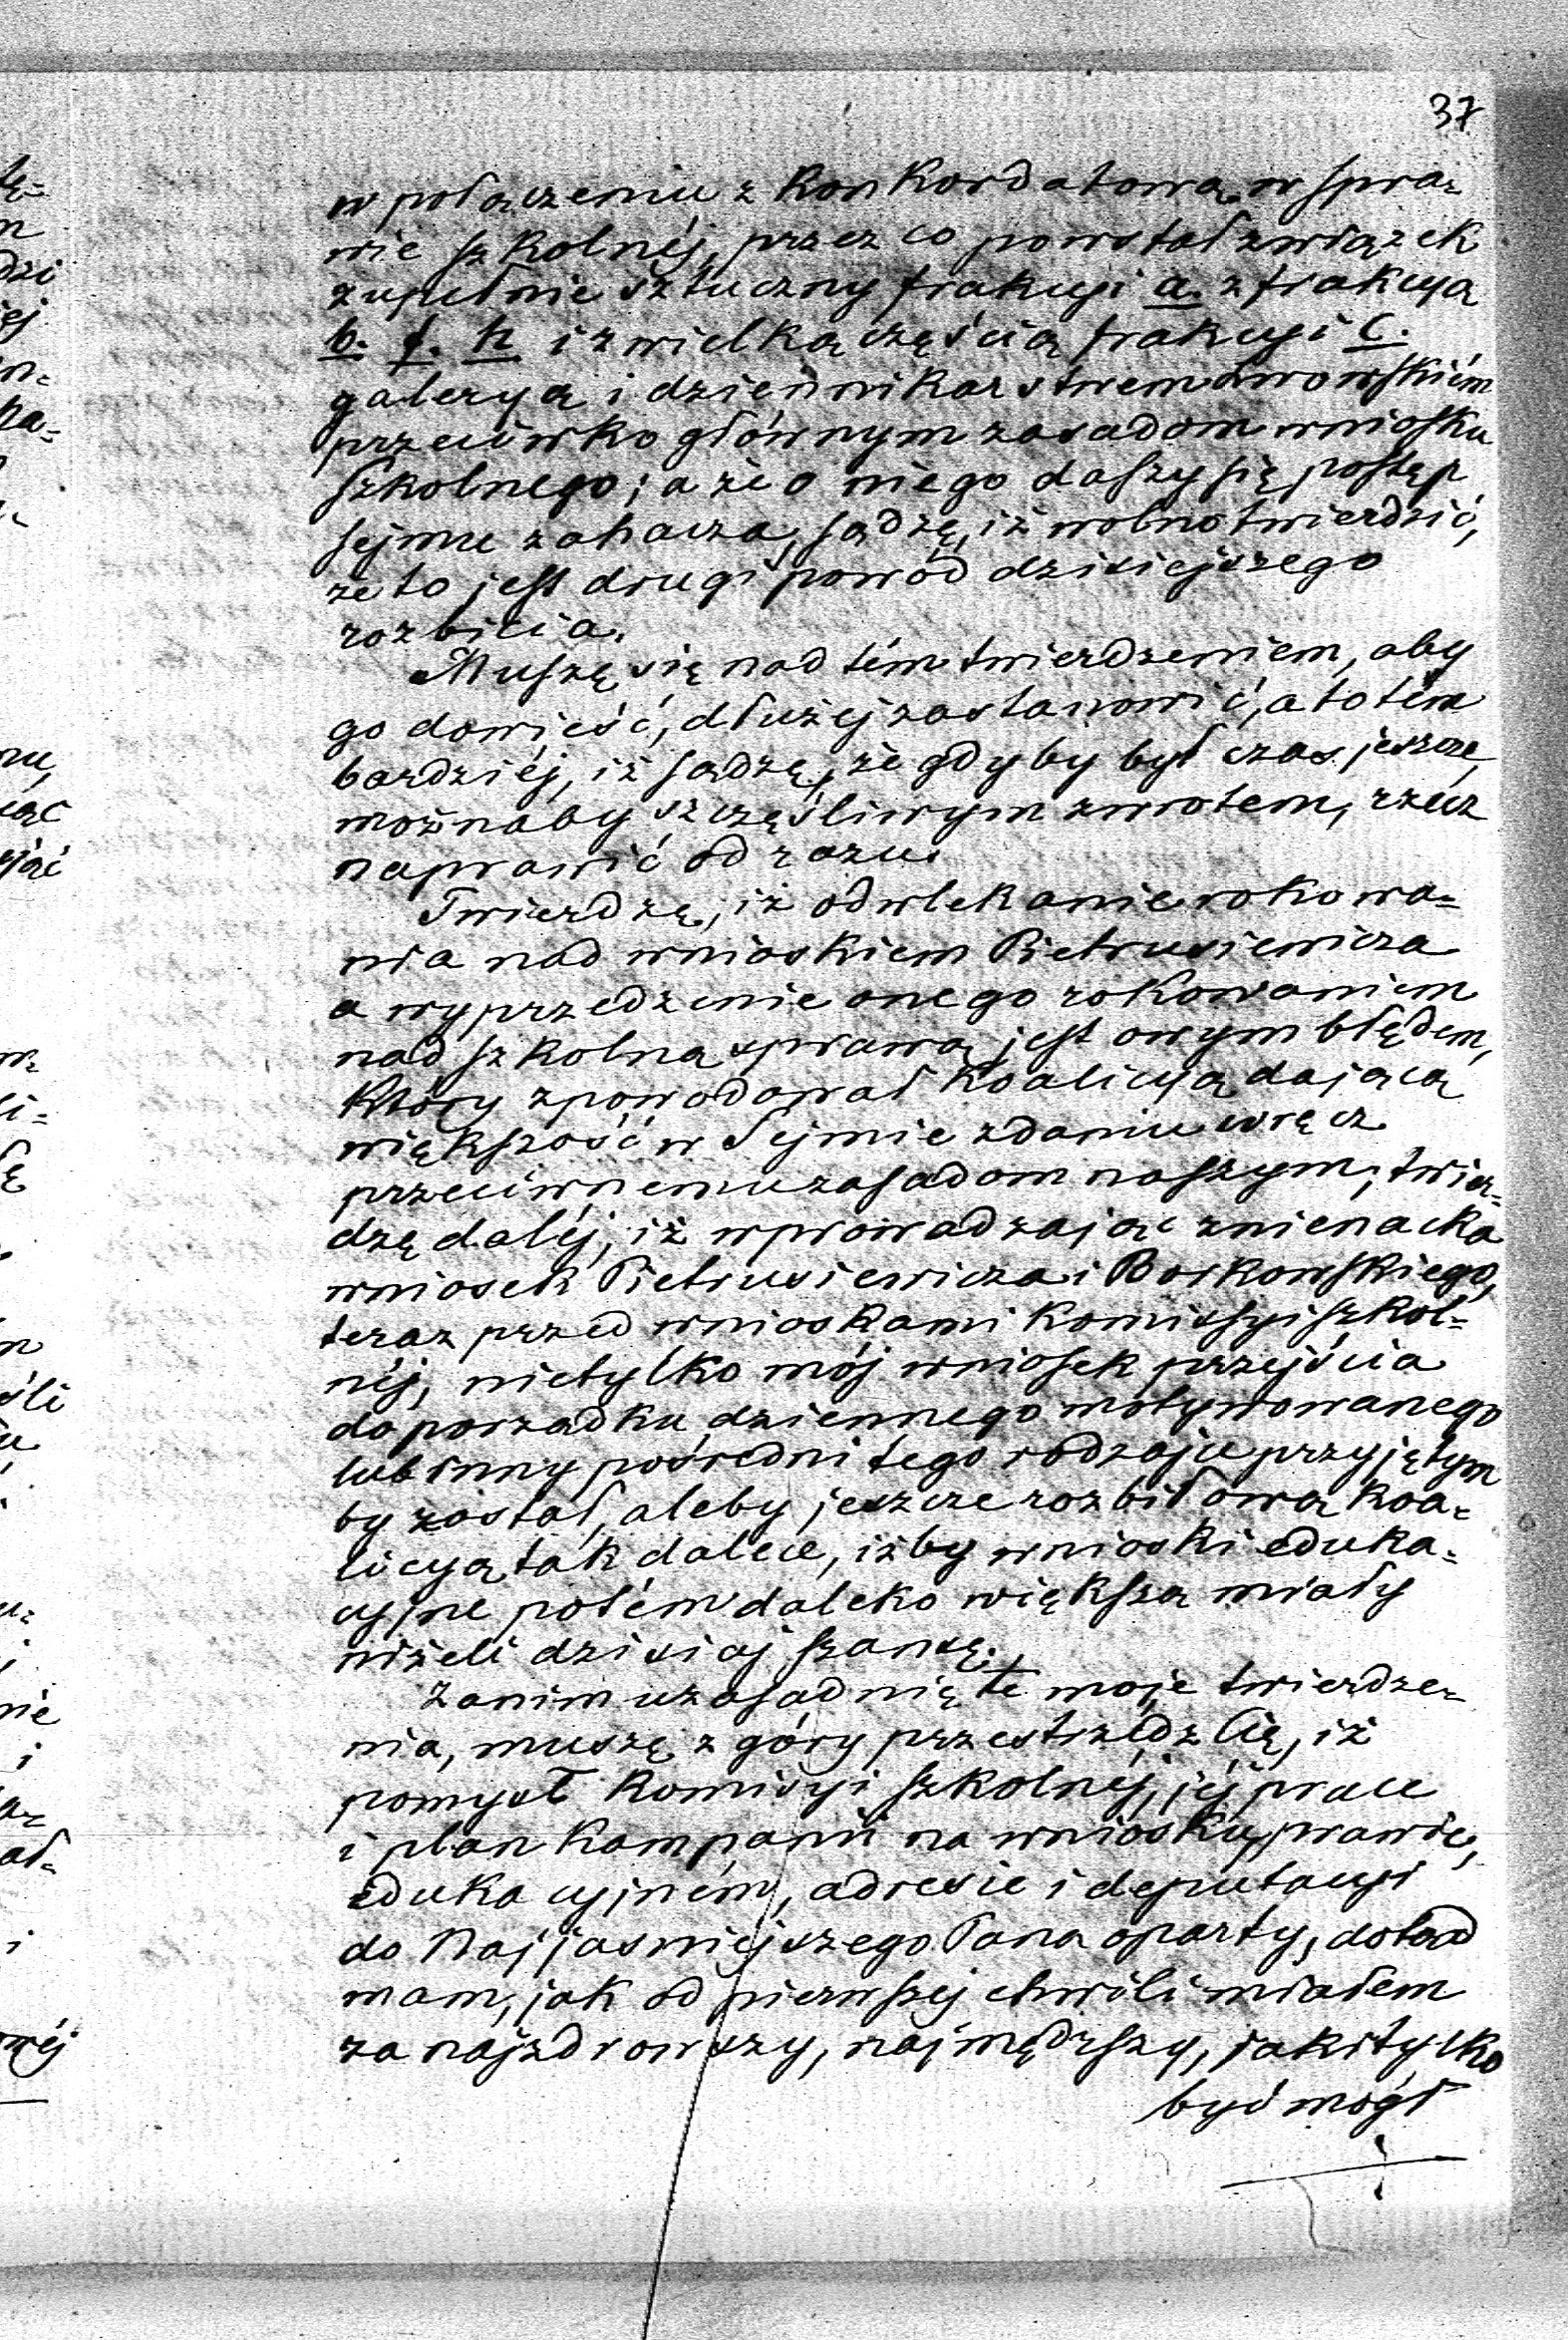 37
w połączeniu z Konkordatową w spra=
wie szkolnéj, przez co powstał związek
zupełnie sztuczny frakcyi a. z frakcyą
b. f. h i z wielką częścią frakcyi c.
galeryą i dziennikarstwem lwowskiém
przeciwko głównym zasadom wniosku
szkolnego; a że o niego dalszy się postęp
sejmu zahacza, sądzę, iż wolno twierdzić,
że to jest drugi powód dzisiejszego
rozbicia.
Muszę się nad tém twierdzeniem, aby
go dowieść, dłużej zastanowić, a to tém
bardziéj, iż sądzę, że gdyby był czas jeszcze,
możnaby szczęśliwym zwrotem, rzecz
naprawić od razu.
Twierdzę, iż odwlekanie rokowa=
nia nad wnioskiem Pietrusiewicza
a wyprzedzenie onego rokowaniem
nad szkolną sprawą, jest owym błędem,
który spowodował koalicyą dającą
większość w Sejmie zdaniu wręcz
przeciwnemu zasadom naszym; twier=
dzę daléj, iż wprowadzając znienacka
wniosek Pietrusiewicza i Borkowskiego,
teraz przed wnioskami Komissyi szkol=
néj, nietylko mój wniosek przejścia
do porządku dziennego motywowanego
lub inny pośredni tego rodzaju przyjętym
by został, aleby jeszcze rozbił ową koa=
licyą tak dalece, iżby wnioski eduka=
cyjne potém daleko większą miały
niżeli dzisiaj szansę.
Zanim uzasadnię te moje twierdze=
nia, muszę z góry przestrzedz Cię, iż
pomysł Komisyi szkolnéj, jéj prace
i plan kampanii na wniosku, prawie,
edukacyjném, adresie i deputacyi
do Najjaśniejszego Pana oparty, dotąd
mam, jak od pierwszéj chwili miałem
za najzdrowszy, najmędrszy, jaki tylko
być mógł